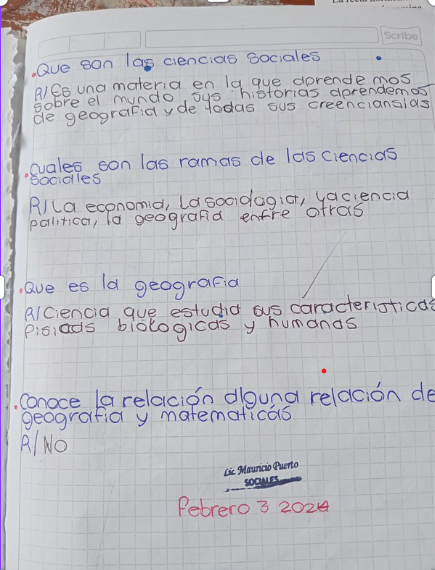 Scribe
.Que son las ciencias Sociales
R/Es una materia en la que aprende mos
sobre el mundo, sus historias aprendemos
de geografia y de todas sus creenciansias
.cuales son las ramas de las ciencias
sociales
R/La economia, La sociologia, la ciencia
politica, la geografia entre otras
.Que es la geografia
R/Ciencia que estudia sus caracteristicas
fisicas biologicas y humanas
.conoce la relación alguna relación de
geografia y matematicas
R/No
Lic. Mauricio Puerto
SOCIALES
Febrero 3 2024